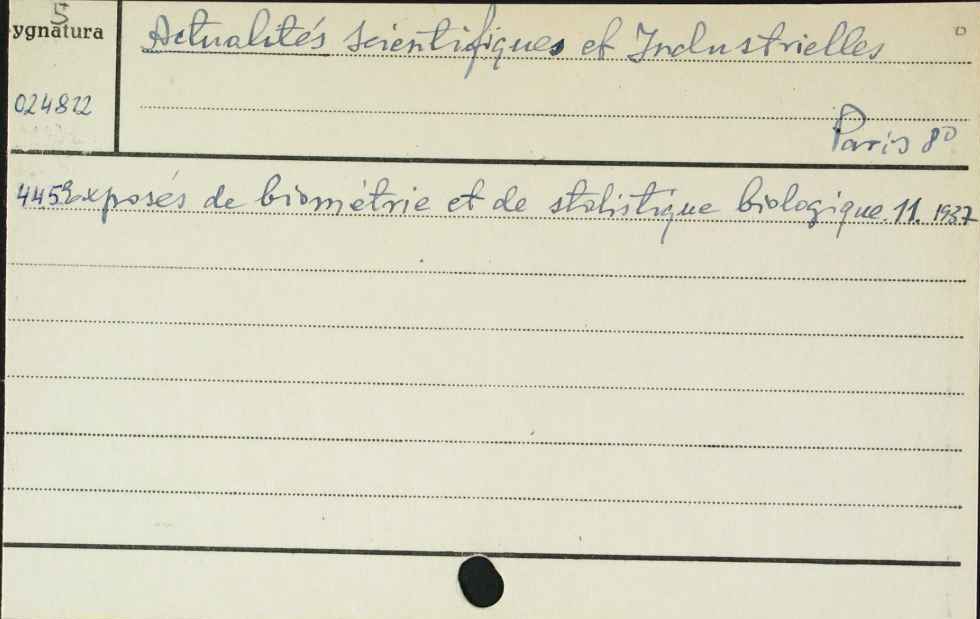 5
ygnatura
Actualités Scientifiques et Industrielles
024822
Paris 8°
445 Exposés de biométrie et de statistique biologique. 11. 1937